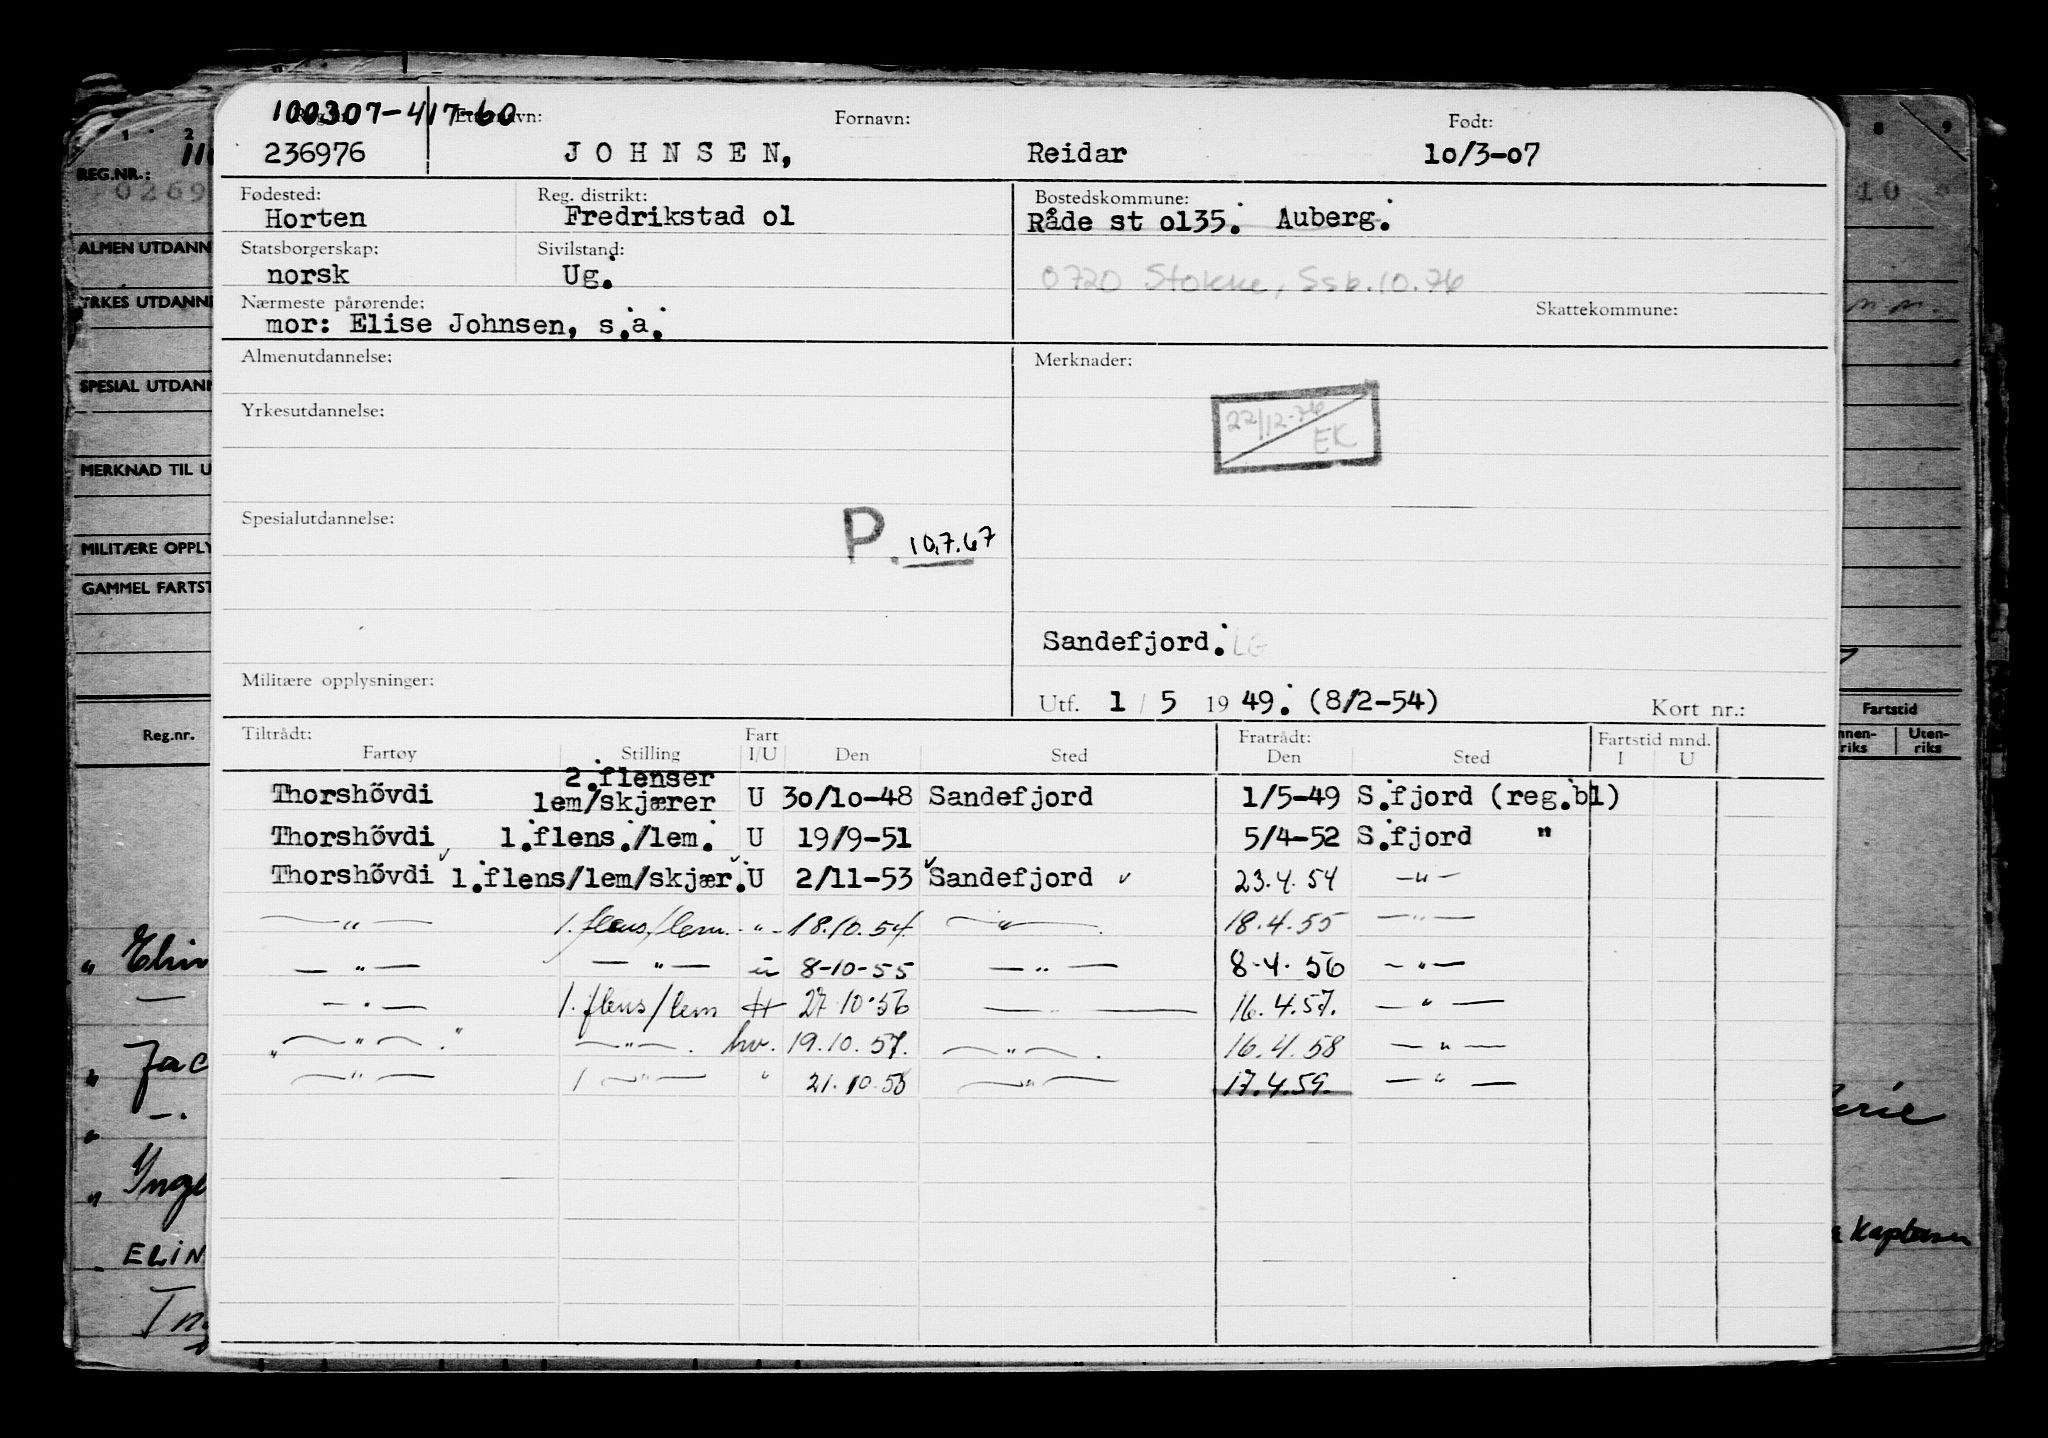 100307-417-60
Etternavn: Fornavn: Født:
236976 JOHNSEN, Reidar 10/3-07
Fødested: Reg. distrikt: Bostedskommune:
Horten Fredrikstad 01 Råde st 0135. Auberg.
Statsborgerskap: Sivilstand:
norsk Ug. 0720 Stokke, Ssb. 10.76
Nærmeste pårørende: Skattekommune:
mor: Elise Johnsen, s.a.
Almenutdannelse: Merknader:
22/12-76 EK
Yrkesutdannelse:
Spesialutdannelse:
P. 10.7.67
Sandefjord. LG
Militære opplysninger:
Utf. 1/5 1949. (8/2-54) Kort nr.:
Tiltrådt: Fart Fratrådt: Fartstid mnd.
Fartøy Stilling I/U Den Sted Den Sted I U
2.flenser
Thorshövdi lem/skjærer U 30/10-48 Sandefjord 1/5-49 S.fjord (reg.bl)
Thorshövdi 1.flens./lem. U 19/9-51 5/4-52 S.fjord "
Thorshövdi 1.flens/lem/skjær. U 2/11-53 Sandefjord 23.4.54 —"—
—"— 1. flens/lem. -"- 18.10.54 —"— 18.4.55 —"—
—"— —"— ü 8-10-55 —"— 8.4.56 —"—
—"— 1. flens/lem 27.10.56 — — 16.4.57. —"—
—"— —"—. hv. 19.10.57. —"— 16.4.58 —"—
—"— 1 —"— " 21.10.58 —"— 17.4.59. —"—
REG.NR.:
ALMEN UTDANN
YRKES UTDANNE
SPESIAL UTDANN
MERKNAD TIL U
MILITÆRE OPPLY
GAMMEL FARTST
Reg.nr.
" Elin
" Jac
" Inge
" ELIN
Fartstid
nnen-riks Uten-riks
Kaptein